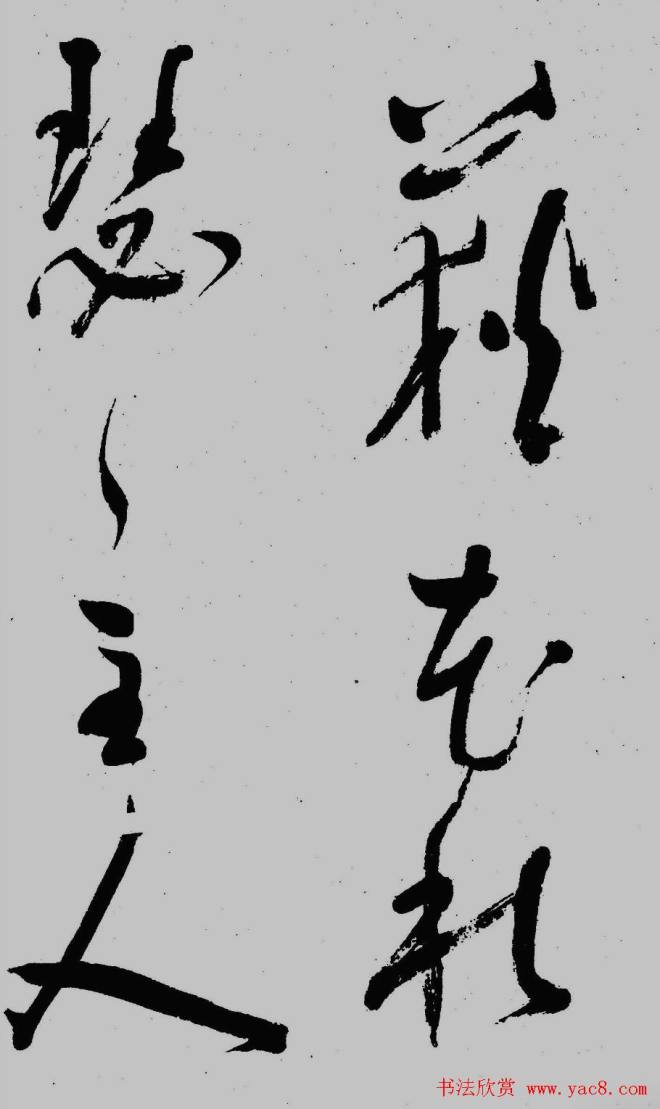 荻花秋
瑟〻主人
书法欣赏 www.yac8.com